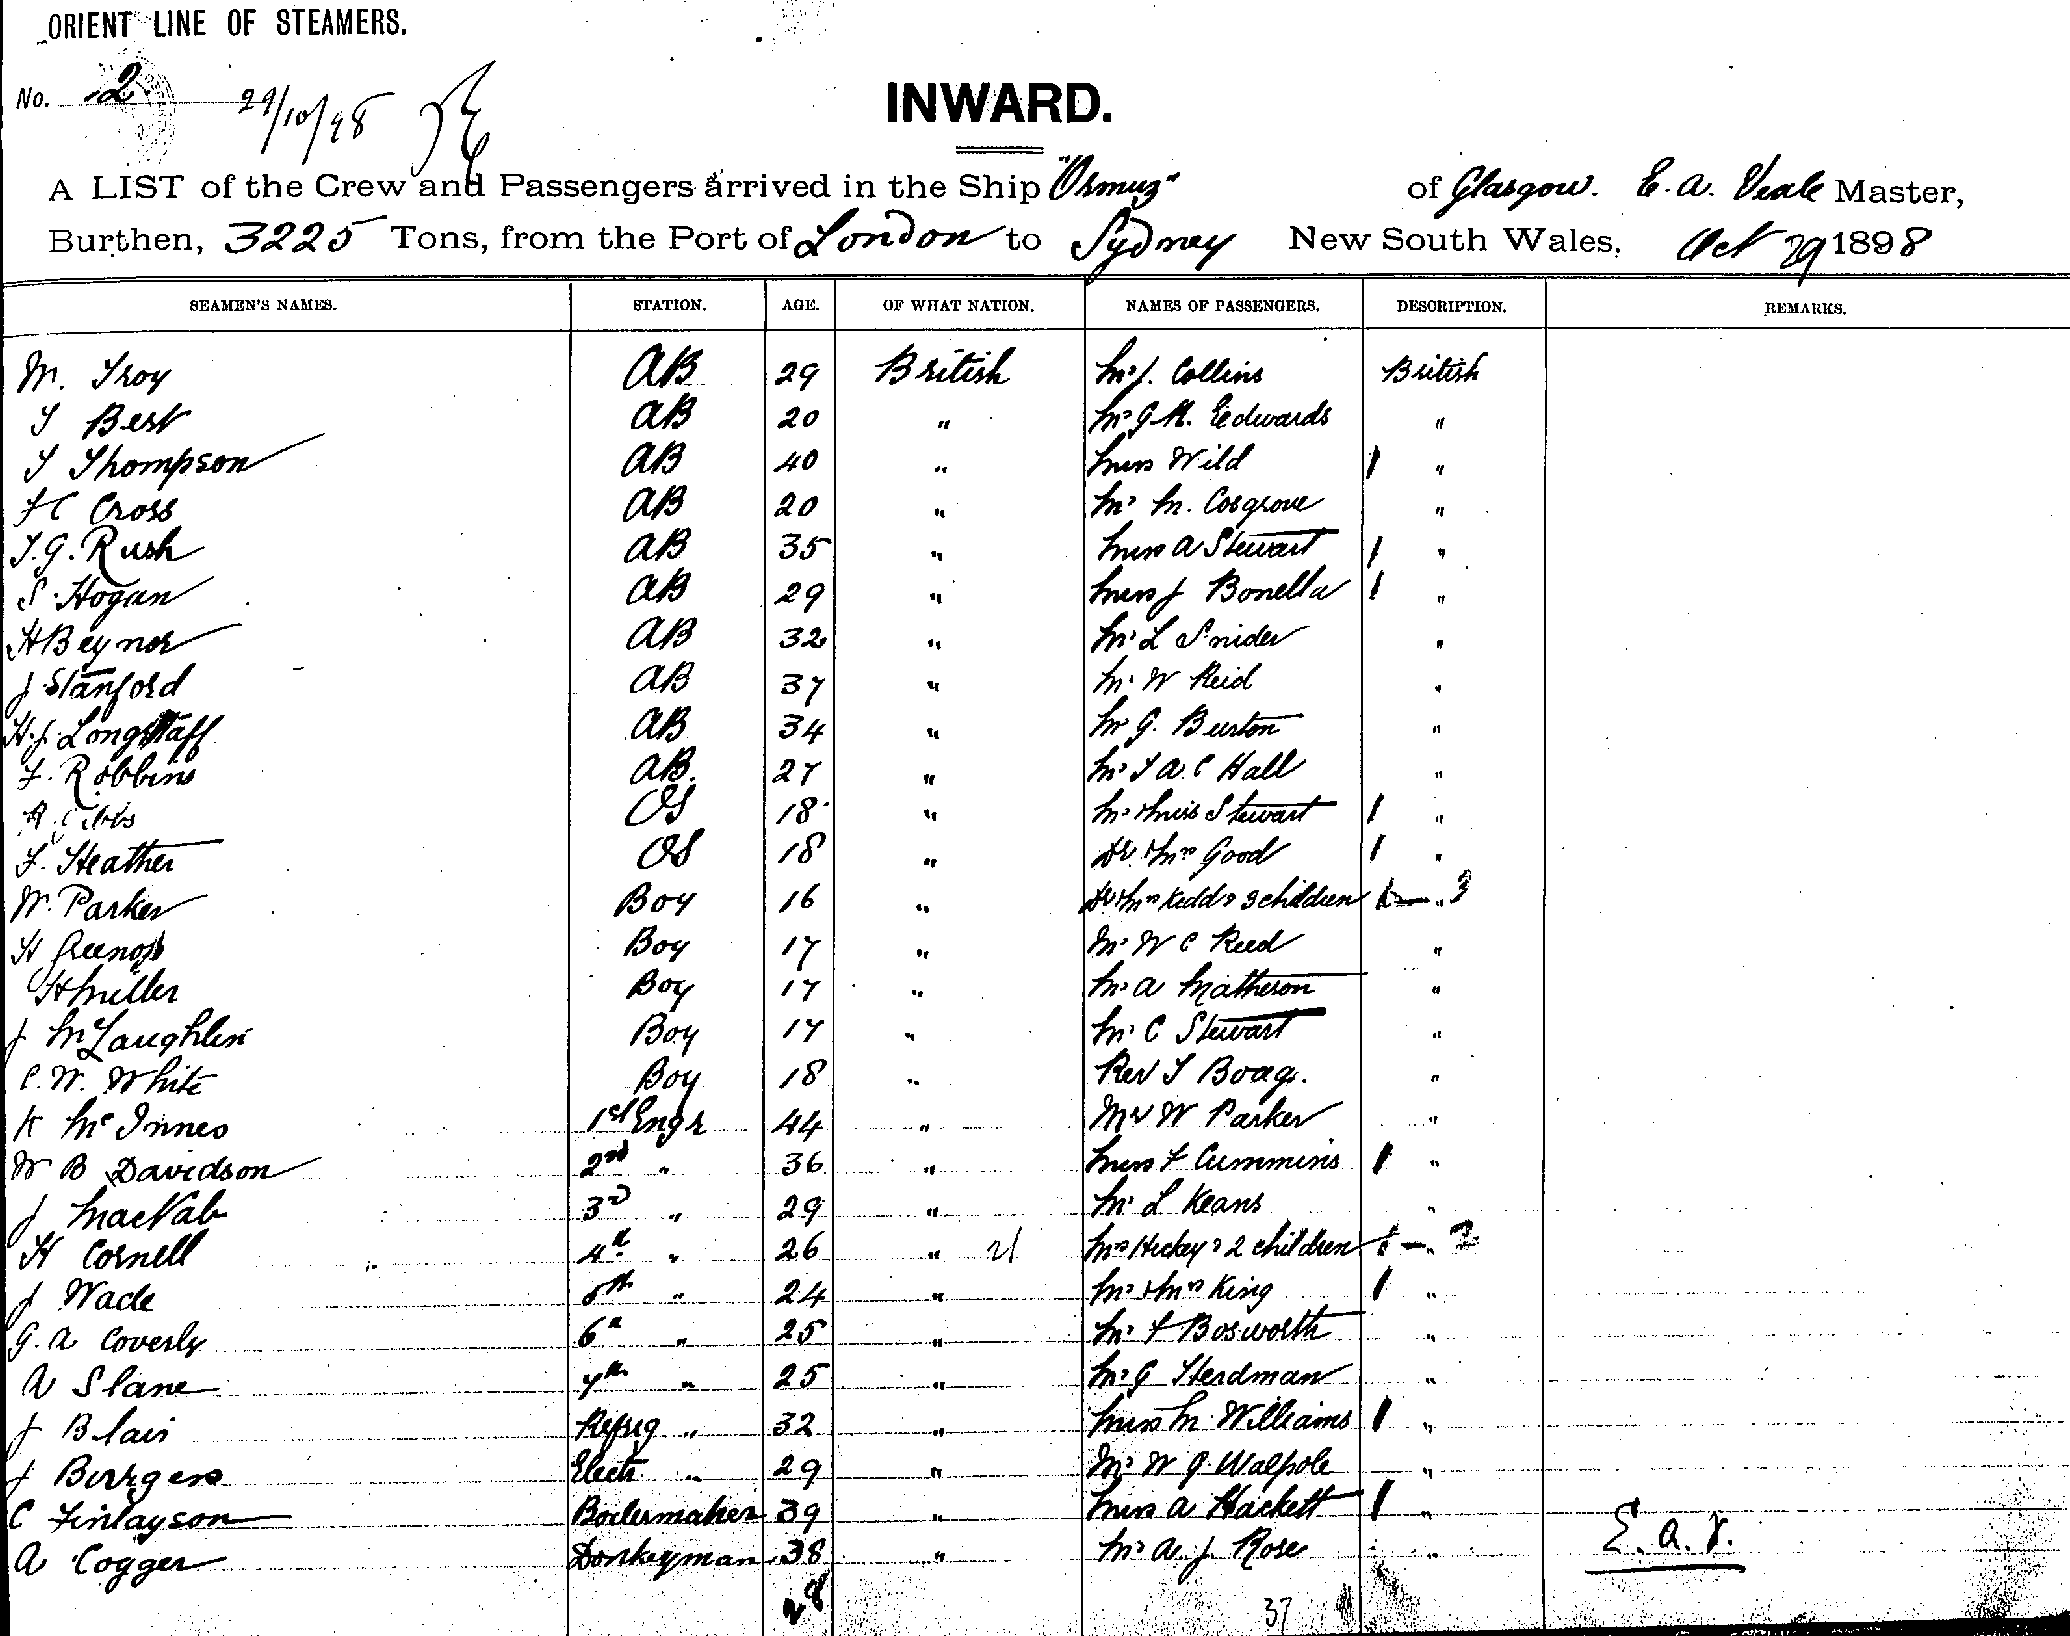 ORIENT LINE OF STEAMERS.
No. 2 29/10/98
INWARD.
A LIST of the Crew and Passengers arrived in the Ship "Ormuz" of Glasgow. E. A. Veale Master,
Burthen, 3225 Tons, from the Port of London to Sydney New South Wales, Oct 29 1898
SEAMEN'S NAMES. STATION. AGE. OF WHAT NATION. NAMES OF PASSENGERS. DESCRIPTION. REMARKS.
M. Troy AB 29 British Mr J. Collins British
T Best AB 20 " Mr G. H. Edwards "
T Thompson AB 40 " Miss Wild 1 "
H C Cross AB 20 " Mr M. Cosgrove "
T. G. Rush AB 35 " Miss A Stewart 1 "
S Hogan AB 29 " Miss J Bonella 1 "
H Beynor AB 32 " Mr L Snider "
J Stanford AB 37 " Mr W Reid "
H. J. Longstaff AB 34 " Mr G. Burton "
F. Robbins AB. 27 " Mr T A. C Hall "
OS 18 " Mr & Miss Stewart 1 "
F. Heather OS 18 " Dr. & Mrs Good 1 "
W. Parker Boy 16 " Dr & Mrs Kidd & 3 children 1 — " 3
H Boy 17 " Mr W C Reed "
H Miller Boy 17 " Mr A Matheson "
J McLaughlin Boy 17 " Mr C Stewart "
C. W. White Boy 18 " Rev T Boag. "
K McInnes 1st Engr 44 " Mr W Parker "
W B Davidson 2nd " 36 " Miss F Cummins 1 "
J MacNab 3d " 29 " Mr L Keans "
H Cornell 4th " 26 " 21 Mrs Hickey & 2 children 1 — " 2
J Wade 5th " 24 " Mr & Mrs King 1 "
G. A Coverly 6th " 25 " Mr F Bosworth "
A Slane 7th " 25 " Mr G Herdman "
J Blair Refrig " 32 " Miss M Williams 1 "
J Burgess Elect " 29 " Mr W G Walpole "
C Finlayson Boilermaker 39 " Miss A Hackett 1 "
A Cogger Donkeyman 38 " Mr A. J. Rose "
E. A. V.
28 37